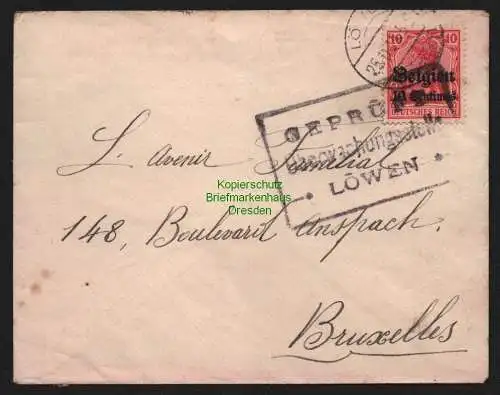 LÖ
25
10 10
Belgien
10 Centimes
DEUTSCHES REICH
GEPRÜFT
Überwachungsstelle
• LÖWEN •
L'Avenir Familial
148, Boulevard Anspach.
Bruxelles
Kopierschutz
Briefmarkenhaus
Dresden